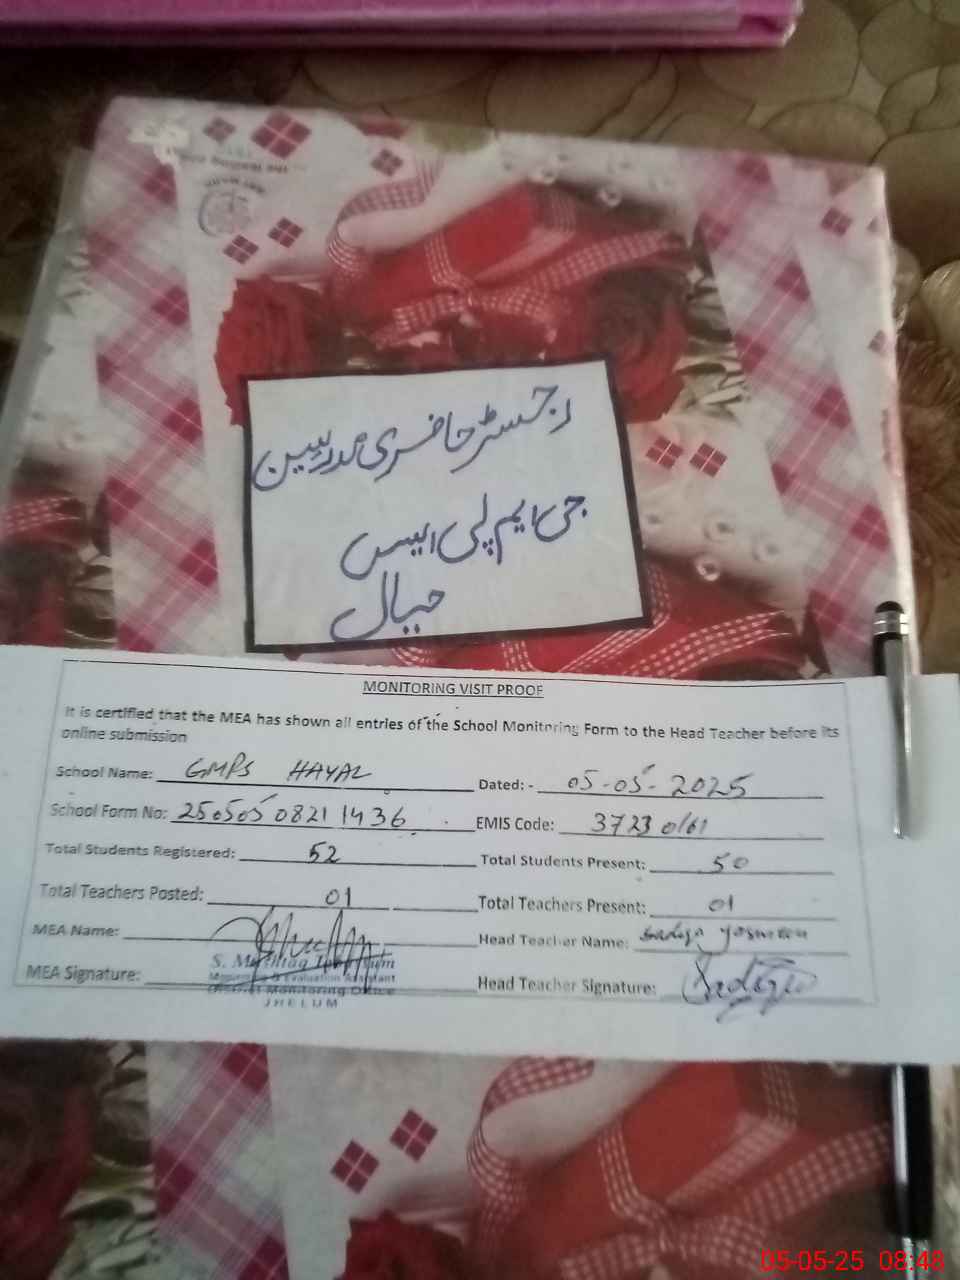 رجسٹر حاضری مدرسین
جی ایم پی ایس
حیال
MONITORING VISIT PROOF
It is certified that the MEA has shown all entries of the School Monitoring Form to the Head Teacher before its
online submission
School Name: GMPS HAYAL Dated: - 05-05-2025
School Form No: 250505 0821 1436 EMIS Code: 3723 0161
Total Students Registered: 52 Total Students Present: 50
Total Teachers Posted: 01 Total Teachers Present: 01
MEA Name: Head Teacher Name: Sadiga Yasmeen
MEA Signature: Head Teacher Signature:
Monitoring & Evaluation Assistant
District Monitoring Office
JHELUM
05-05-25 08:48